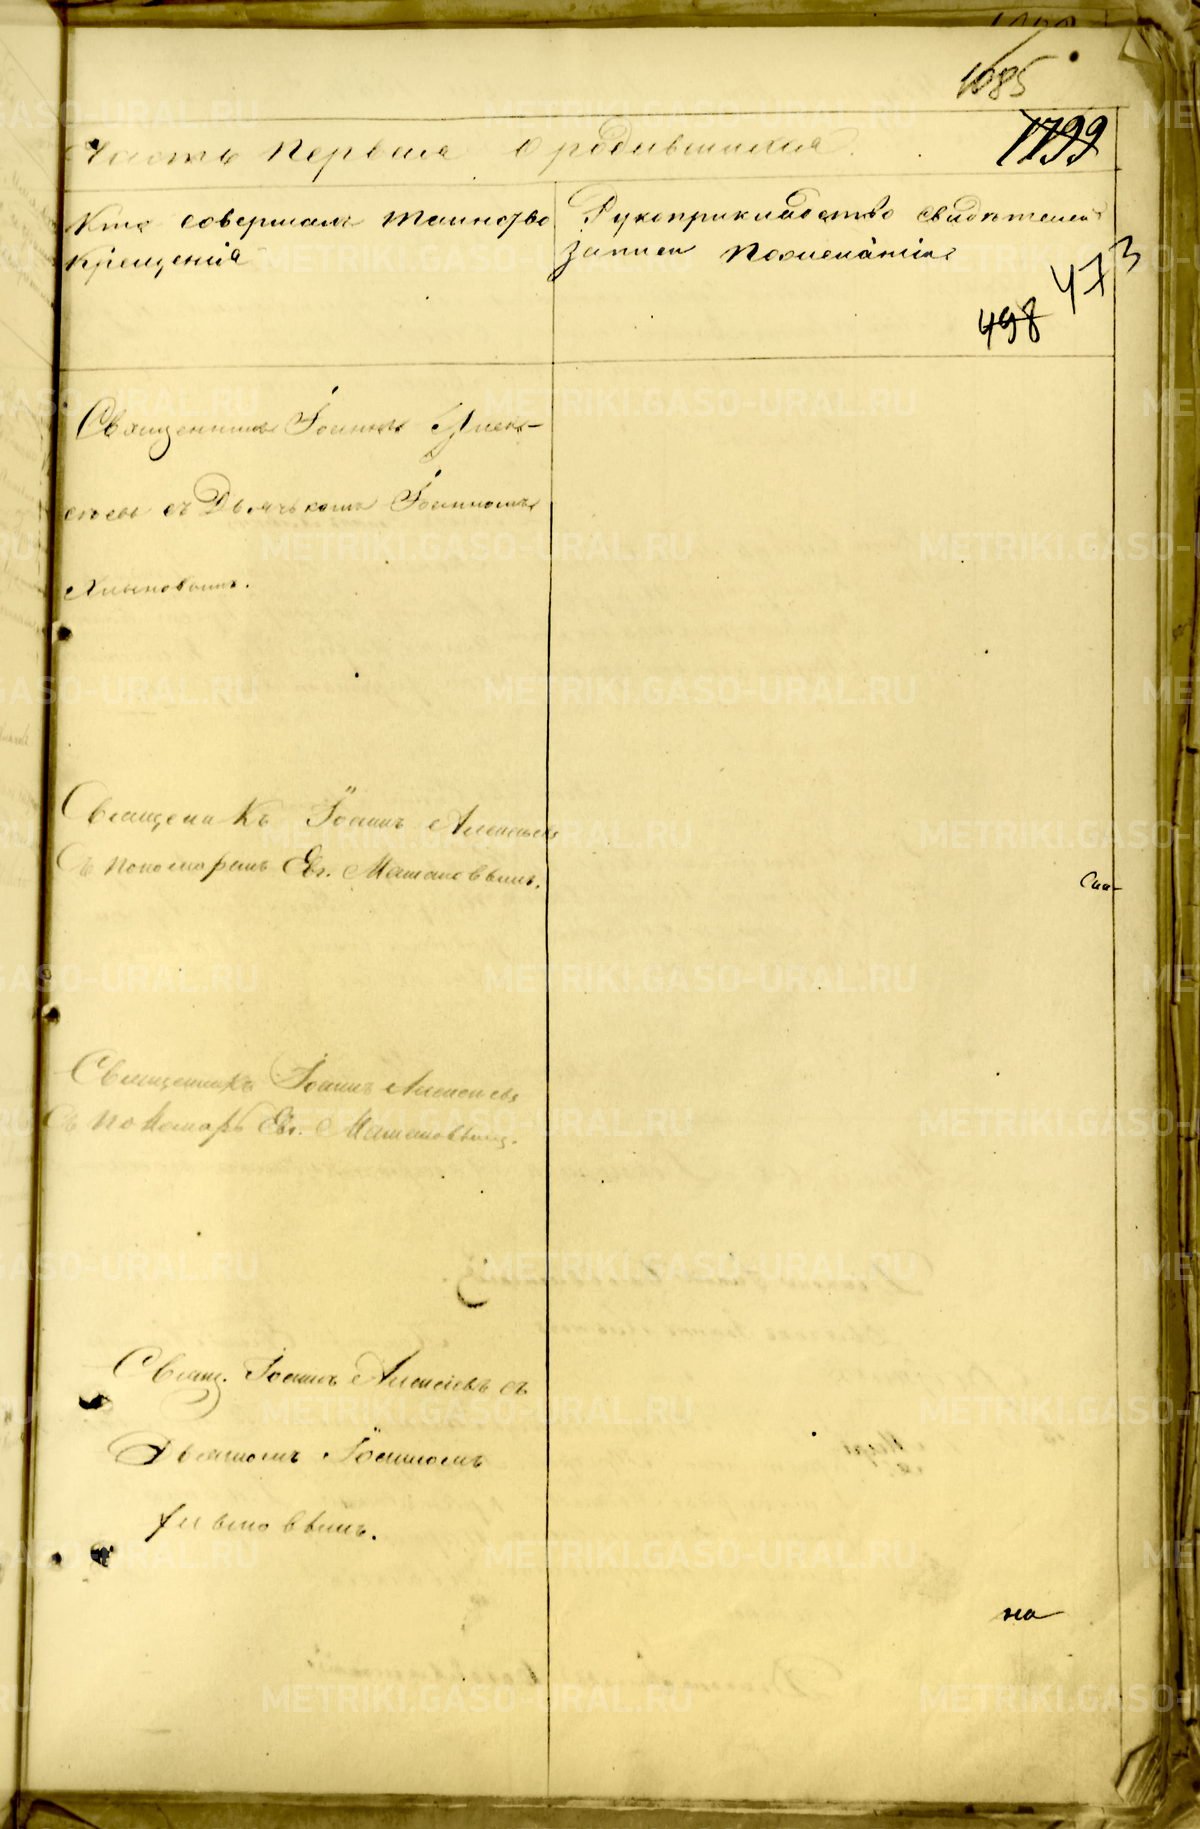 1085
1799
Часть первая о родившихся.
Кто совершалъ таинство
крещенія
Рукоприкладство свидѣтелей
записи по желанію
473
498
Священникъ Іоаннъ Алек-
сѣевъ съ Дьячькомъ Іоанномъ
Хлыновымъ.
Священикъ Іоаннъ Алексѣевъ
Съ пономаремъ Евг.
Спа-
Священникъ Іоаннъ Алексѣевъ
Съ пономаръ Евг.
Свящ. Іоаннъ Алексѣевъ съ
Дьячкомъ Іоанномъ
Хлыновымъ.
на
METRIKI.GASO-URAL.RU